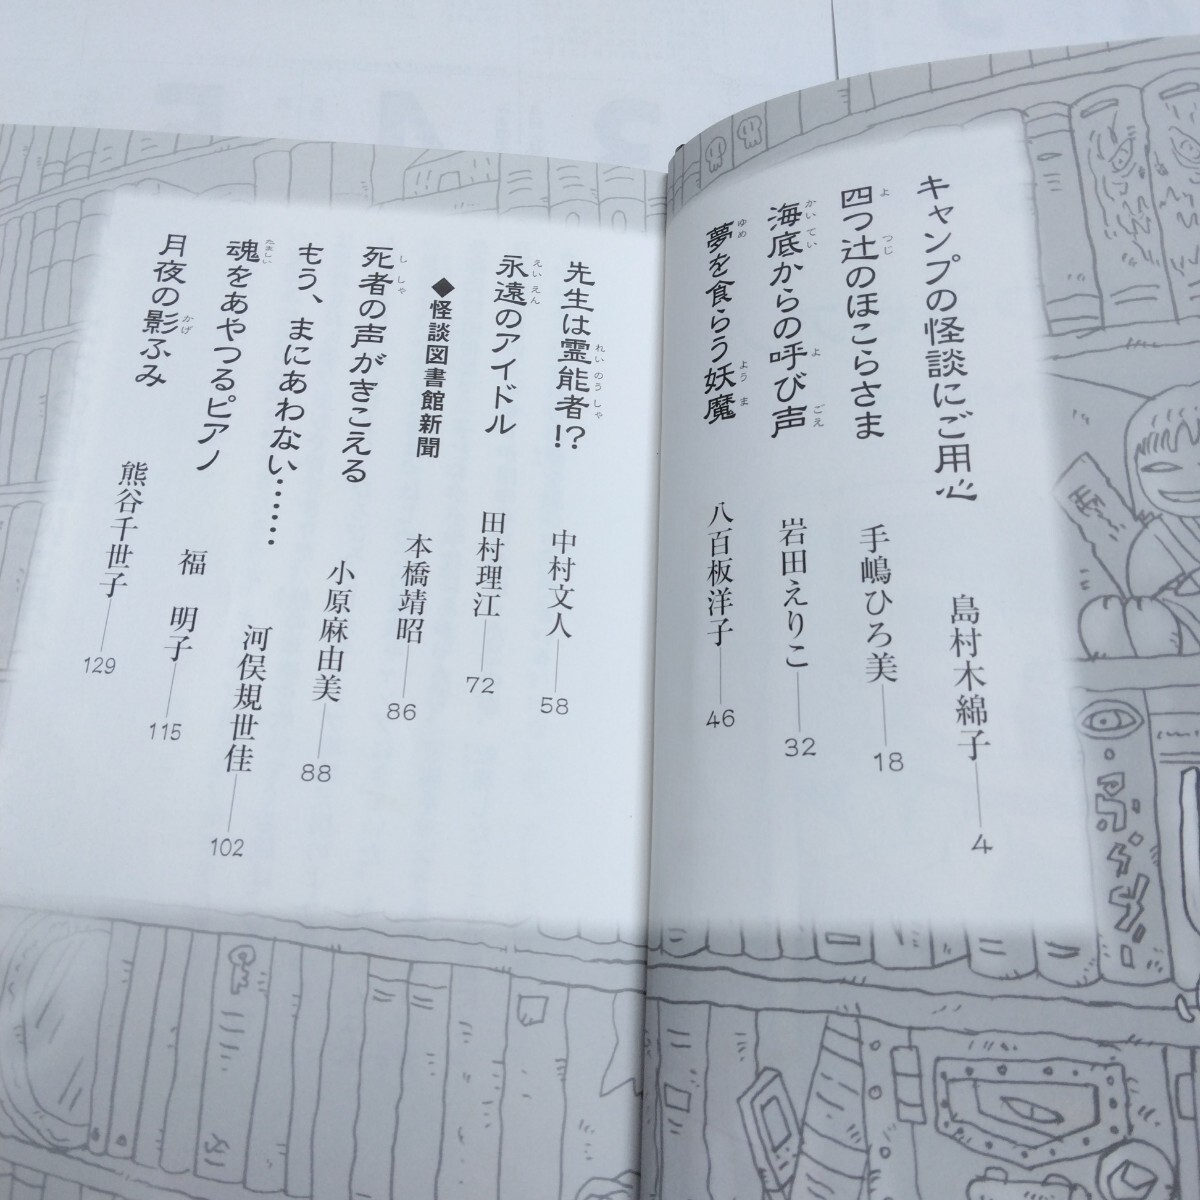 キャンプの怪談にご用心 島村木綿子 4
四つ辻のほこらさま 手嶋ひろ美 18
海底からの呼び声 岩田えりこ 32
夢を食らう妖魔 八百板洋子 46
先生は霊能者!? 中村文人 58
永遠のアイドル 田村理江 72
◆怪談図書館新聞 本橋靖昭 86
死者の声がきこえる 小原麻由美 88
もう、まにあわない…… 河俣規世佳 102
魂をあやつるピアノ 福 明子 115
月夜の影ふみ 熊谷千世子 129